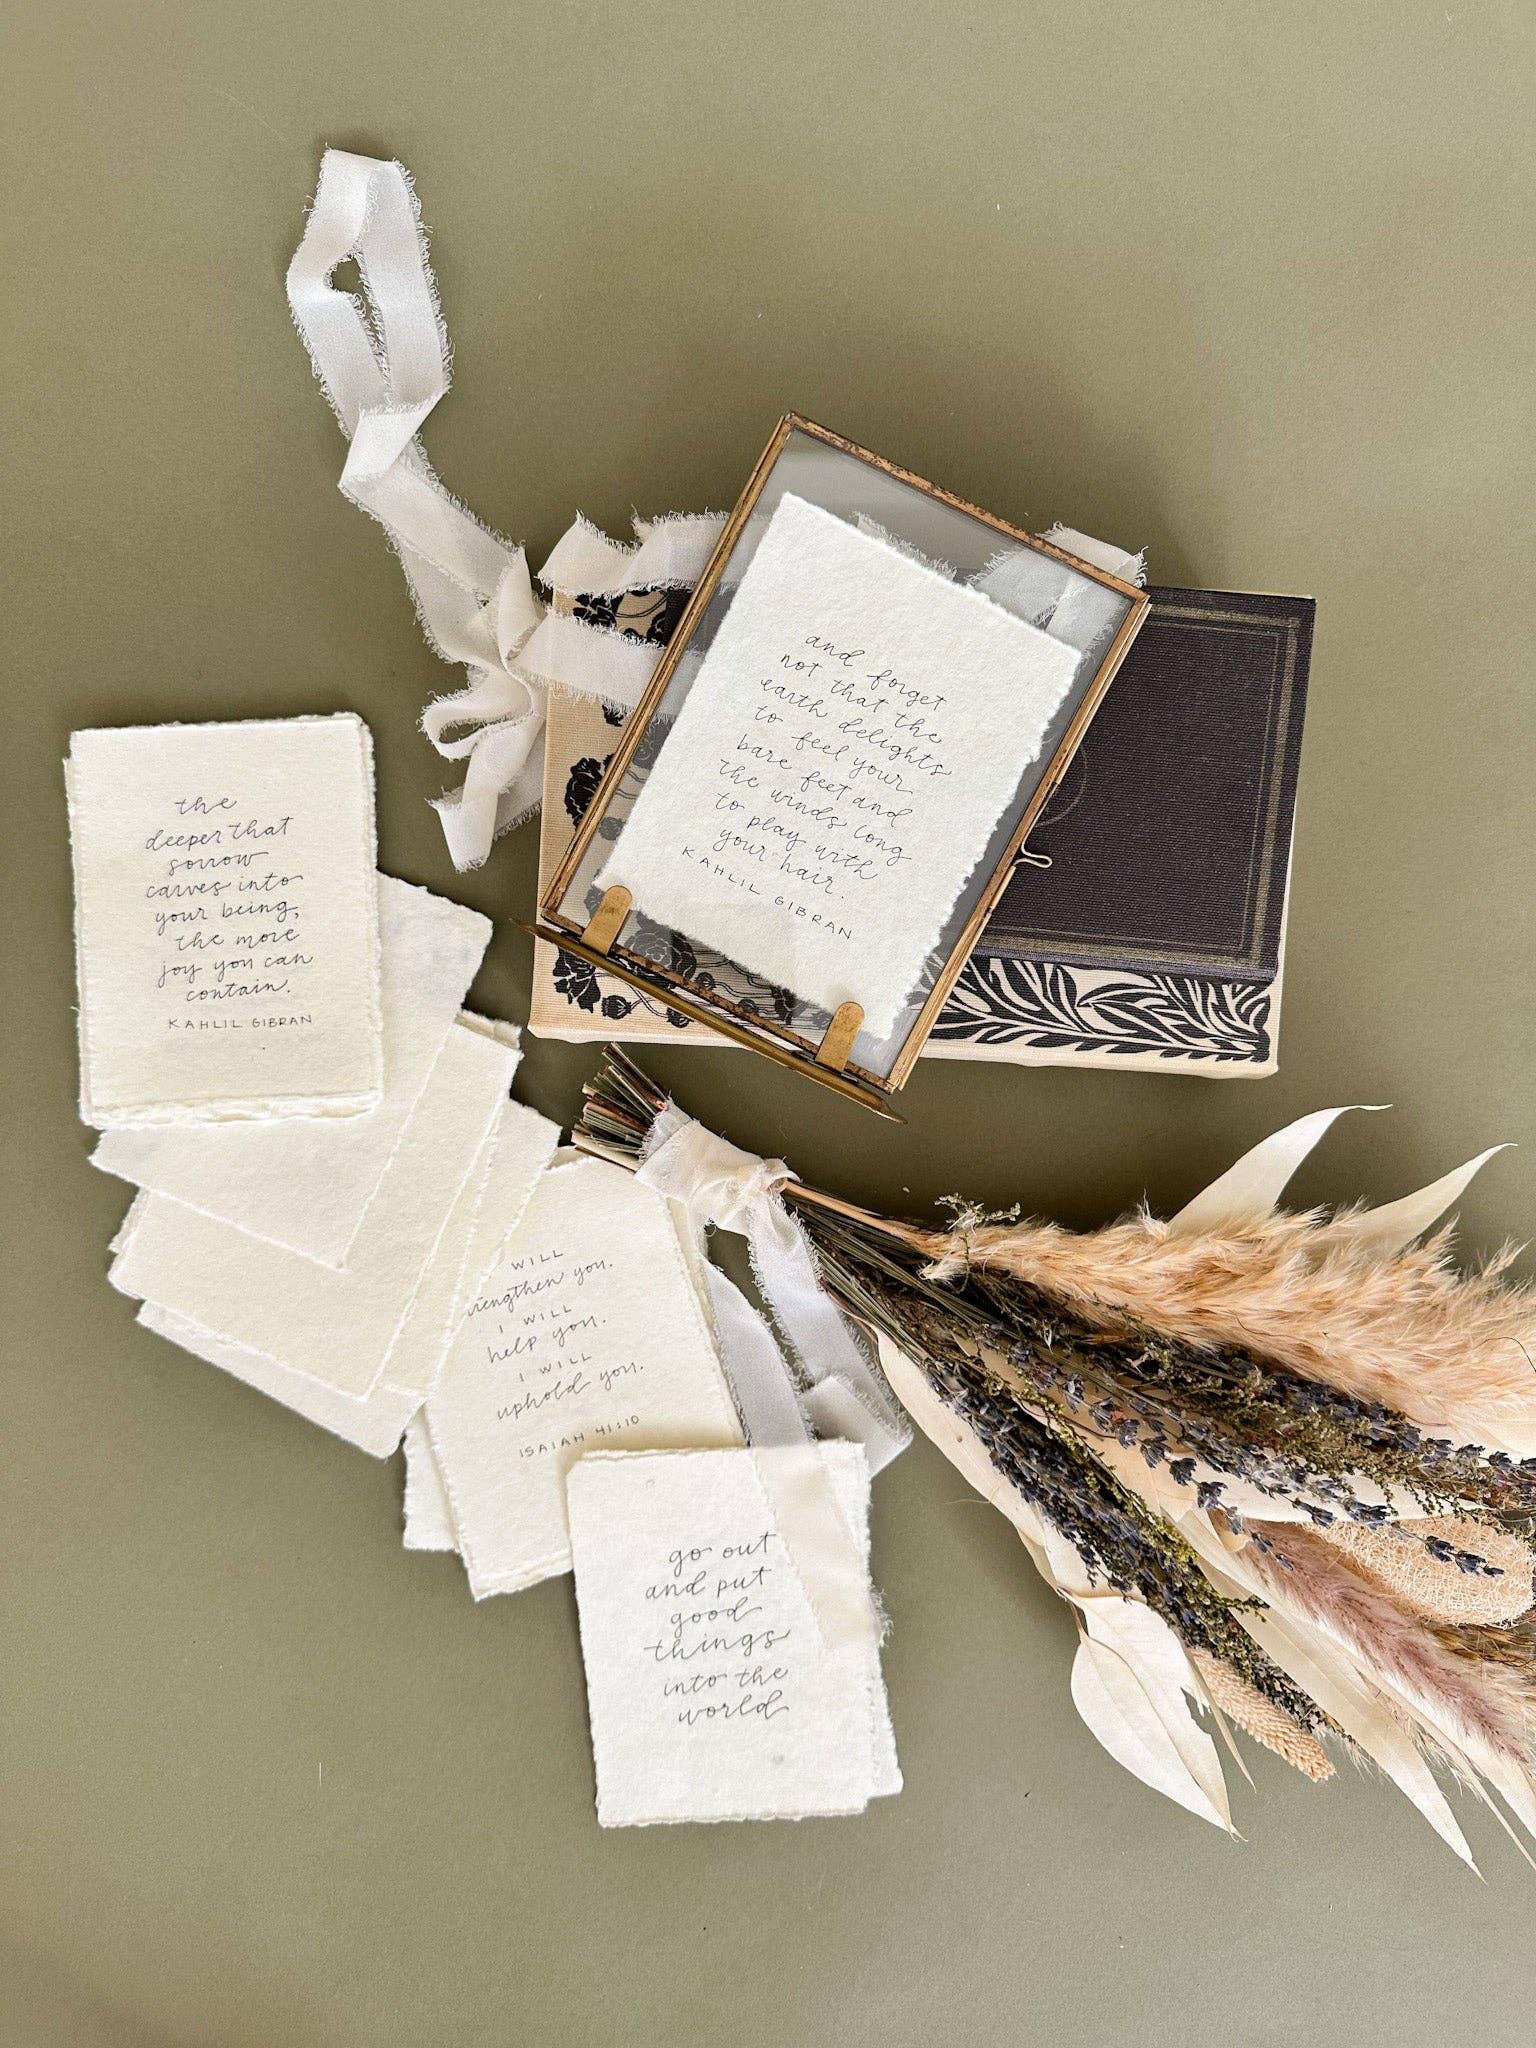 and forget
not that the
earth delights
to feel your
bare feet and
the winds long
to play with
your hair.
KAHLIL GIBRAN
the
deeper that
sorrow
carves into
your being,
the more
joy you can
contain.
KAHLIL GIBRAN
WILL
rengthen you.
I WILL
help you.
I WILL
uphold you.
ISAIAH 41:10
go out
and put
good
things
into the
world